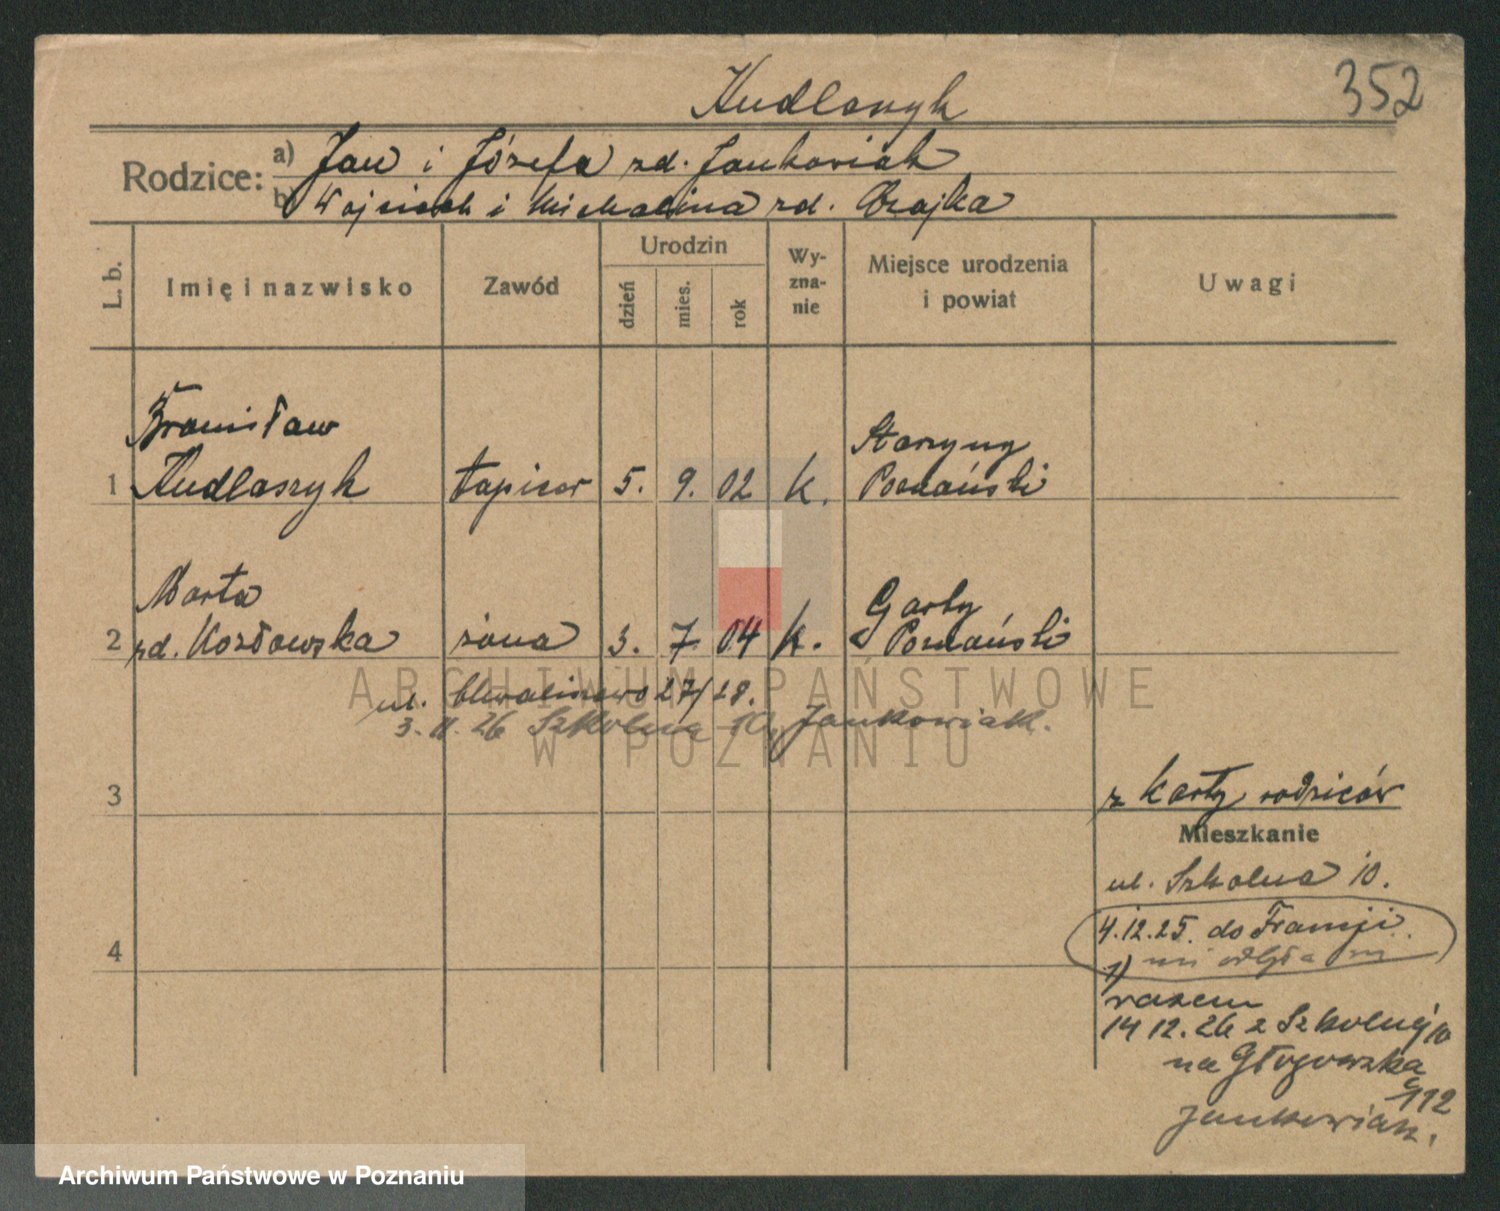 352
Kudlaszyk
Rodzice:
a) Jan i Józefa zd. Jankowiak
b) Wojciech i Michalina zd. Czajka
L. b.
Imię i nazwisko
Zawód
Urodzin
dzień
mies.
rok
Wy-
zna-
nie
Miejsce urodzenia
i powiat
Uwagi
Bronisław
1 Kudlaszyk tapicer 5. 9. 02 k.
Poznański
Marta
2 zd. Kozłowska żona 3. 7. 04 k.
Garby
Poznański
ul. Chwaliszewo 27/28.
3. 11. 26 Szkolna 10, Jankowiak.
3
z karty rodziców
Mieszkanie
ul. Szkolna 10.
4
4.12.25. do Francji
1)
razem
14 12. 26 z Szkolnej 10
na Głogowską
112
Jankowiak.
ARCHIWUM PAŃSTWOWE
W POZNANIU
Archiwum Państwowe w Poznaniu